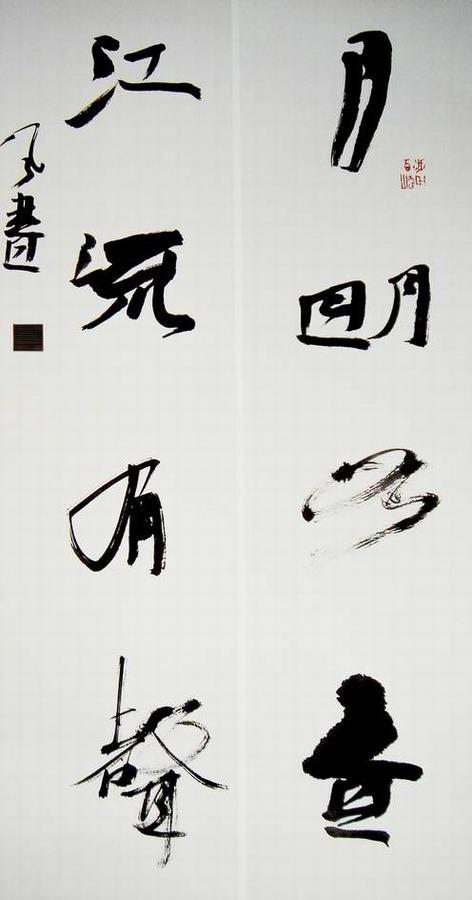 月明如昼
江流有聲
风書